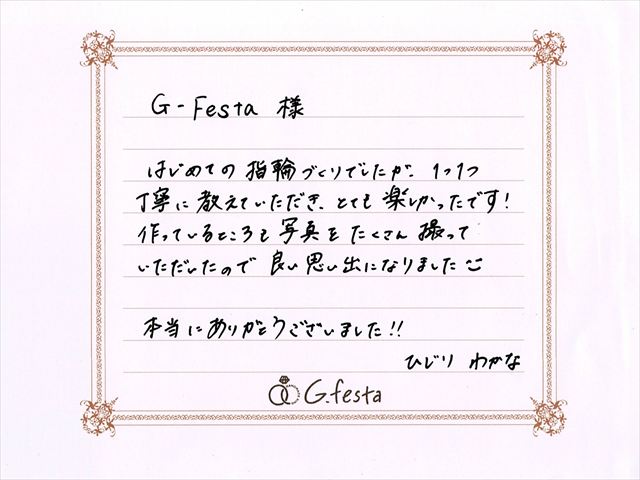 G-Festa 様
はじめての指輪づくりでしたが、1つ1つ
丁寧に教えていただき、とても楽しかったです!
作っているところも写真をたくさん撮って
いただいたので良い思い出になりました
本当にありがとうございました!!
ひじり わかな
G.festa